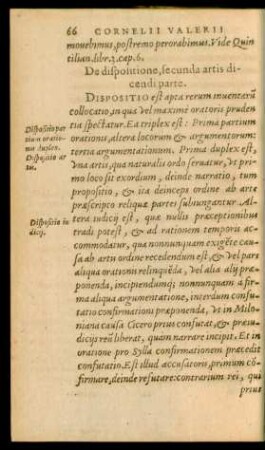 66 CORNELII VALERII
mouebimus, postremo perorabimus. Vide Quin
tilian. libr. 3. cap. 6.
De dispositione, secunda artis di
cendi parte.
DISPOSITIO est apta rerum inuentarū
collocatio, in qua vel maximè oratoris pruden
tia spectatur. Ea triplex est: Prima partium
orationis, altera locorum & argumentorum:
tertia argumentationum. Prima duplex est,
Vna artis, qua naturalis ordo seruatur, vt pri
mo loco sit exordium, deinde narratio, tum
propositio, & ita deinceps ordine ab arte
præscripto reliquæ partes subiungantur. Al-
tera iudicij est, quæ nullis præceptionibus
tradi potest, & ad rationem temporis ac
commodatur, qua nonnunquam exigēte cau-
sa ab artu ordine recedendum est, & vel pars
aliqua orationis relinquēda, vel alia alij præ-
ponenda, incipiendumq; nonnunquam a fir-
ma aliqua argumentatione, interdum confu-
tatio confirmationi præponenda, vt in Milo-
niana causa Cicero prius confutat, & præiu-
dicijs reū liberat, quam narrare incipit. Et in
oratione pro Sylla confirmationem præcedit
confutatio. Est illud accusatoris, primum cō-
firmare, deinde refutare: contrarium rei, qui
prius
Dispositio par
tium oratio-
nis duplex.
Dispositio ar
tis.
Dispositio iu
dicij.